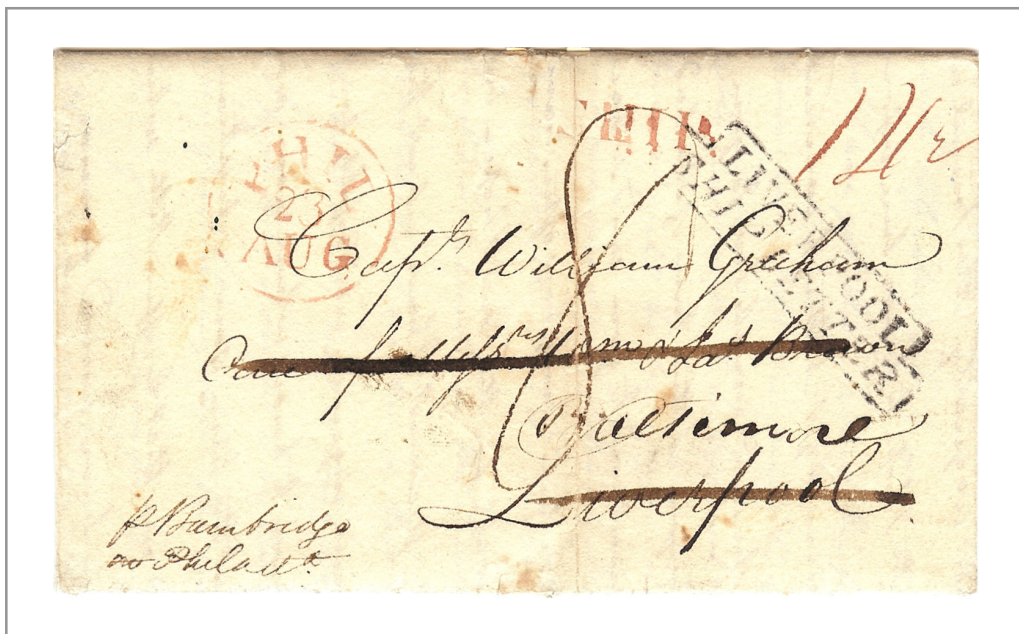 PHIL
23
AUG
SHIP
14½
LIVERPOOL
SHIP LETTER
8
Capt. William Graham
Care of Messrs Wm & Jas Brown
Baltimore
Liverpool
p Bainbridge